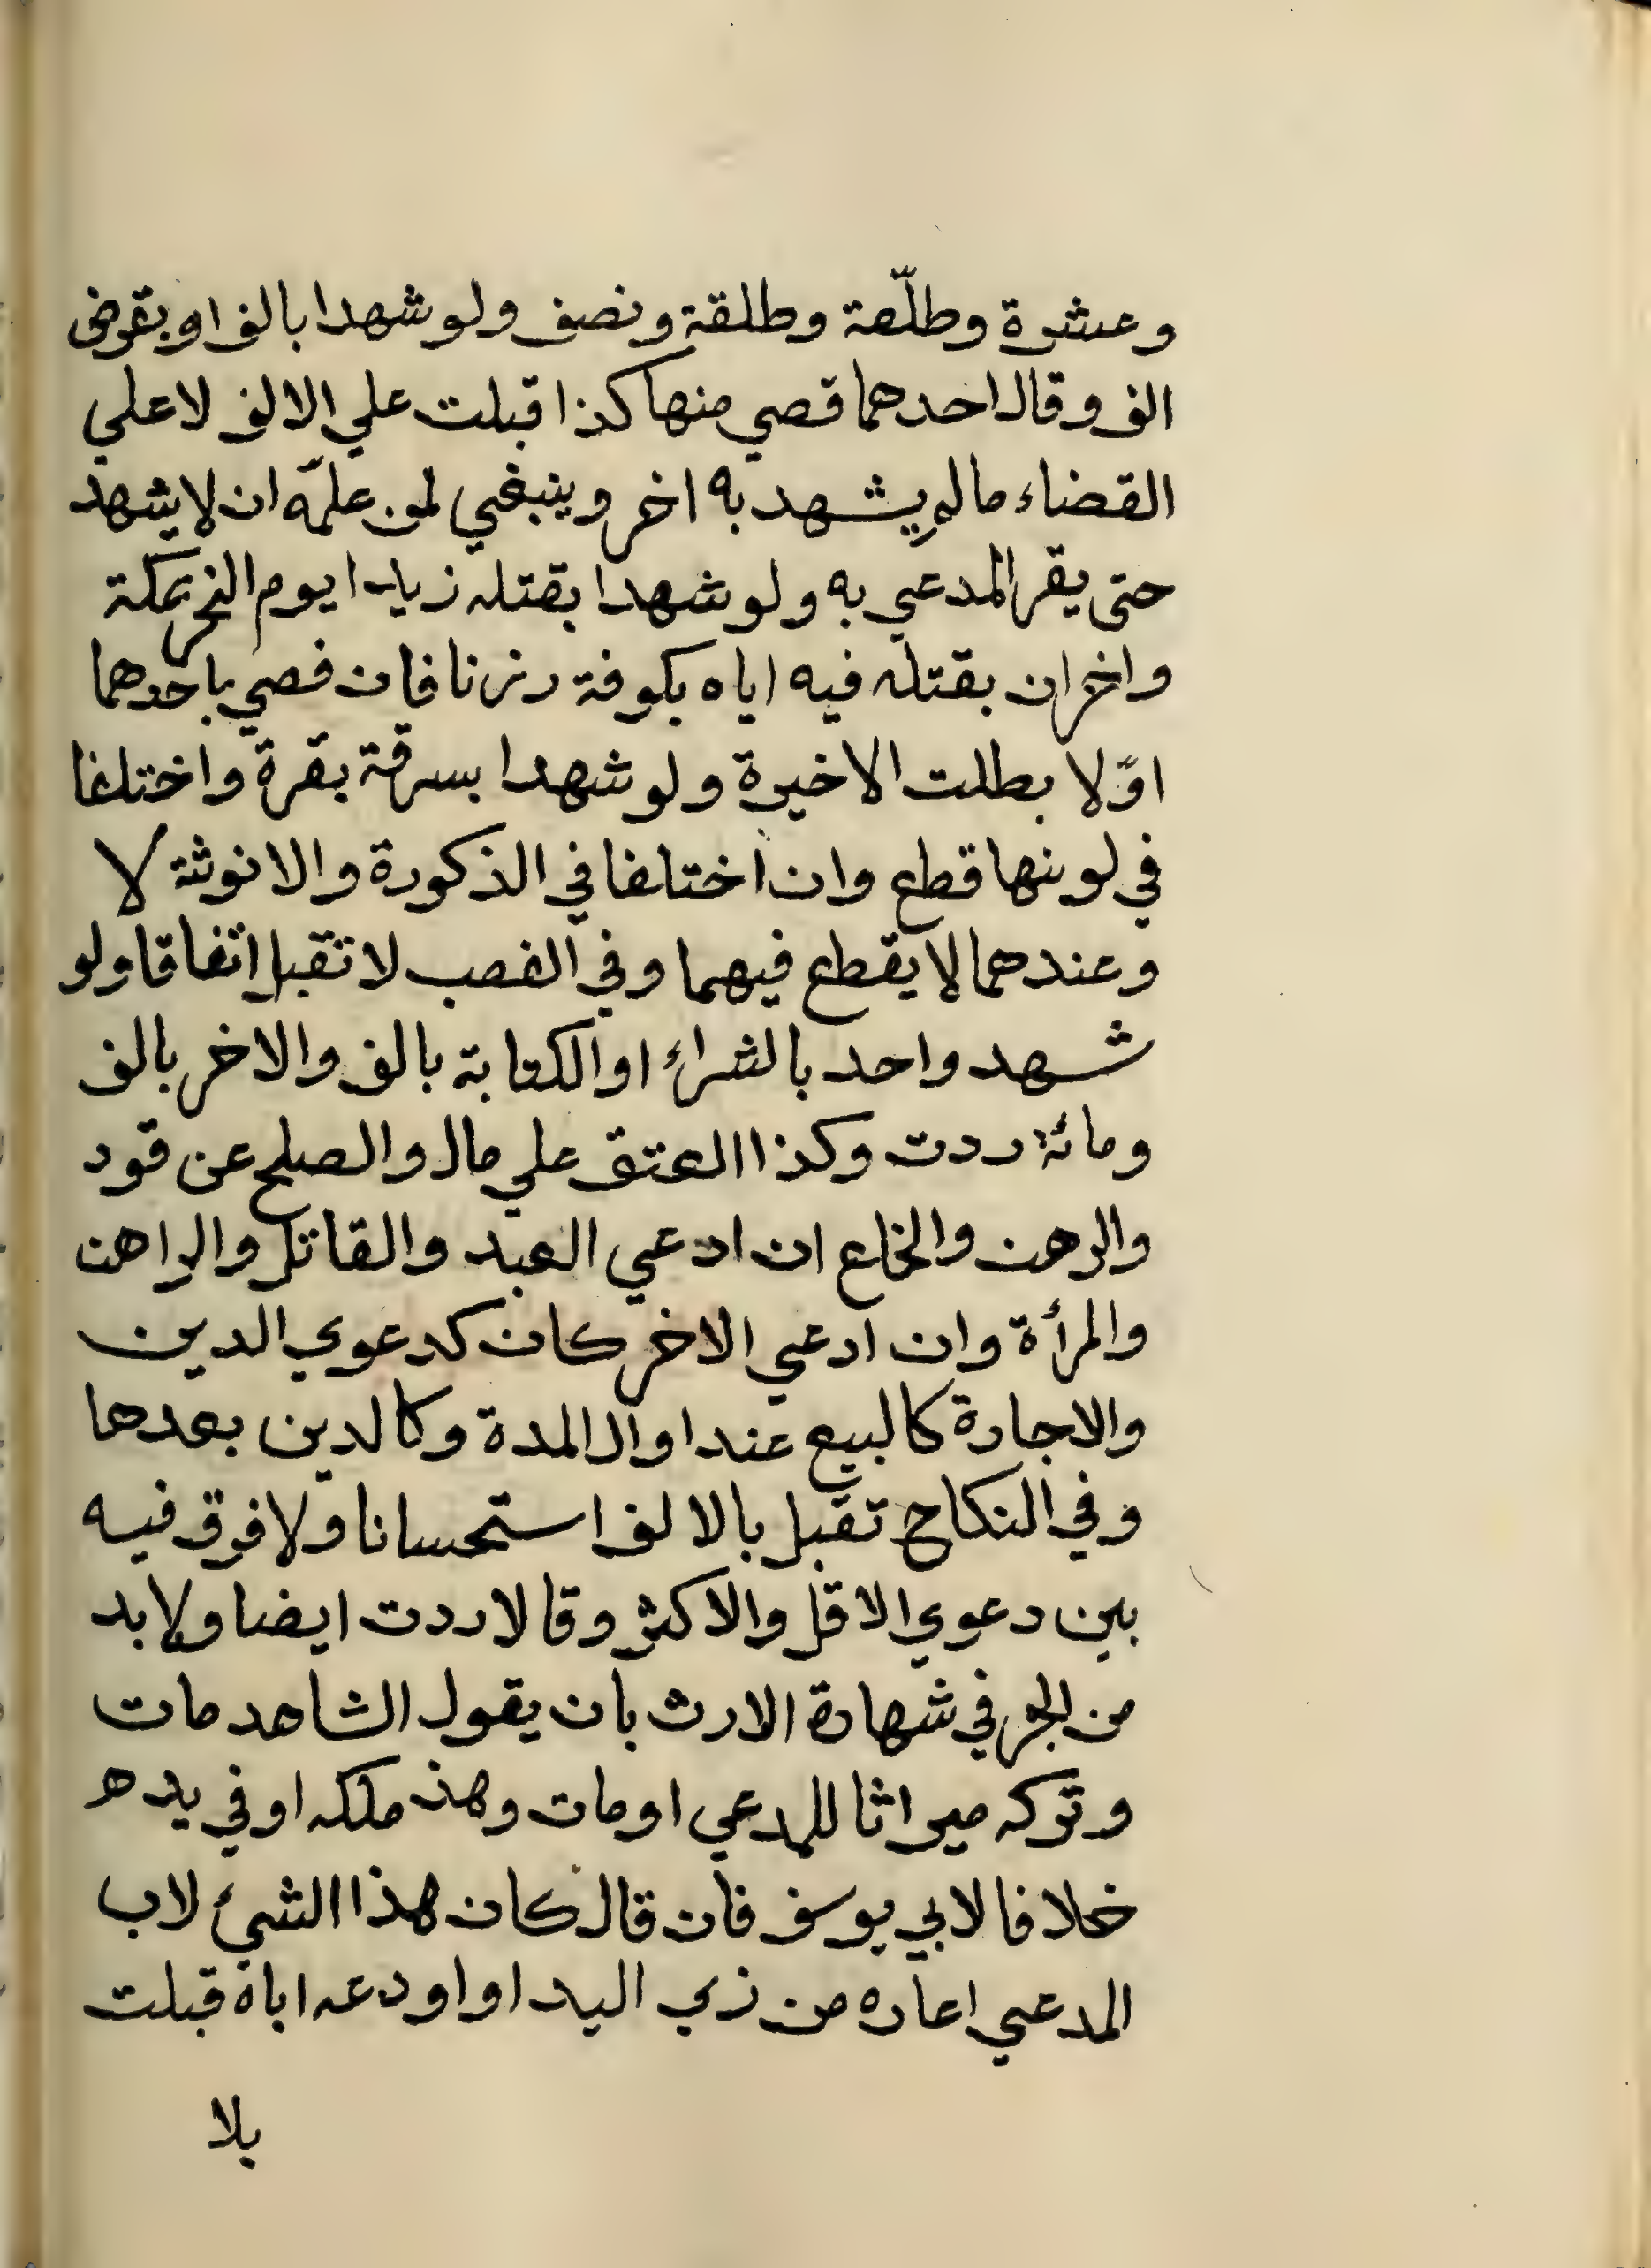 وعشرة وطلّقة وطلقة ونصف ولو شهدا بالف او بقرض
الف وقال احدهما قصي منها كذا قبلت علي الالف لا علي
القضاء ما لم يشهد به اخر وينبغي لمن علمه ان لا يشهد
حتى يقر المدعي به ولو شهدا بقتله زيدا يوم النحر بمكة
واخران بقتله فيه اياه بكوفة ردتا فان قصي باحدهما
اوّلا بطلت الاخيرة ولو شهدا بسرقة بقرة واختلفا
في لونها قطع وان اختلفا في الذكورة والانوثة لا
وعندهما لا يقطع فيهما وفي الغصب لا تقبل اتفاقا ولو
شهد واحد بالشراء او الكتابة بالف والاخر بالف
ومائة ردت وكذا العتق علي مال والصلح عن قود
والرهن والخلع ان ادعي العبد والقاتل والراهن
والمرأة وان ادعي الاخر كان كدعوي الدين
والاجارة كالبيع عند اول المدة وكالدين بعدها
وفي النكاح تقبل بالالف استحسانا ولا فرق فيه
بين دعوي الاقل والاكثر وقالا ردت ايضا ولا بد
من الجر في شهادة الارث بان يقول الشاهد مات
وتركه ميراثا للمدعي او مات وهذ ملكه او في يده
خلافا لابي يوسف فان قال كان هذا الشيئ لاب
المدعي اعاره من ذي اليد او اودعه اباه قبلت
بلا